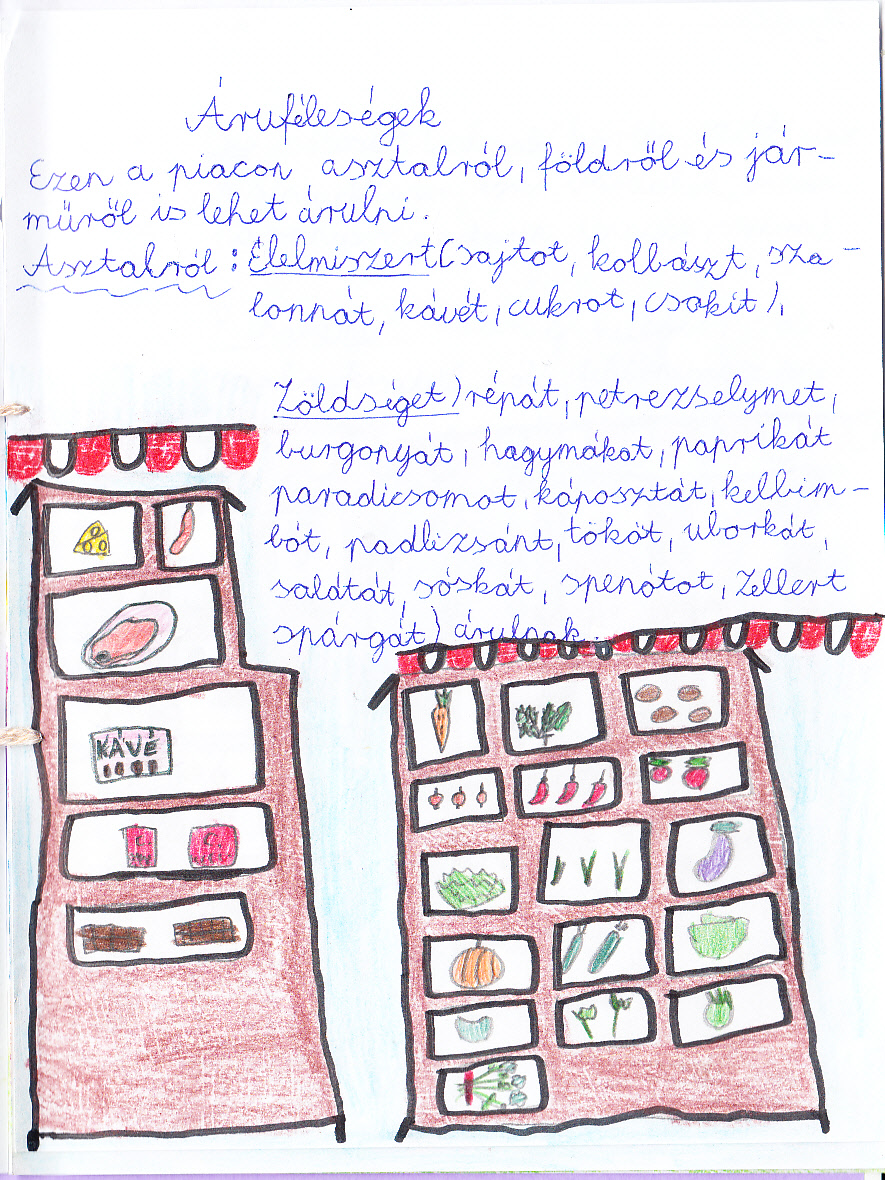 Áruféleségek
Ezen a piacon asztalról, földről és jár-
műről is lehet árulni.
Asztalról: Élelmiszert (sajtot, kolbászt, sza-
lonnát, kávét, cukrot, csokit),
Zöldséget) répát, petrezselymet,
burgonyát, hagymákat, paprikát
paradicsomot, káposztát, kelbim-
bót, padlizsánt, tököt, uborkát,
salátát, sóskát, spenótot, Zellert
spárgát) árulnak.
KÁVÉ